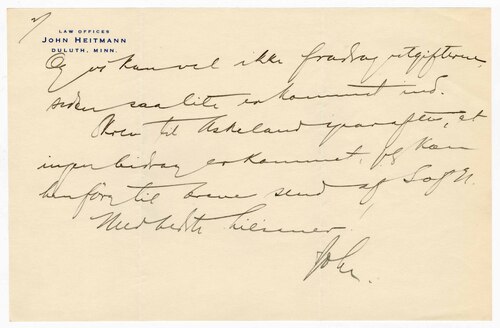 2/
LAW OFFICES
JOHN HEITMANN
DULUTH, MINN.
Og vi kan vel ikke fradrag utgifterne,
siden saa lite er kommet ind.
Skrev til Askeland igaraftes, at
ingen bidrag er kommet, og kan
til send af
Med bedste hilsener!
John.